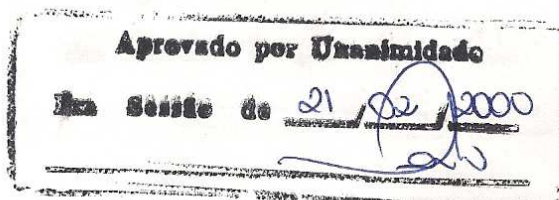 Aprovado por Unanimidade
Em Sessão de 21/02/2000